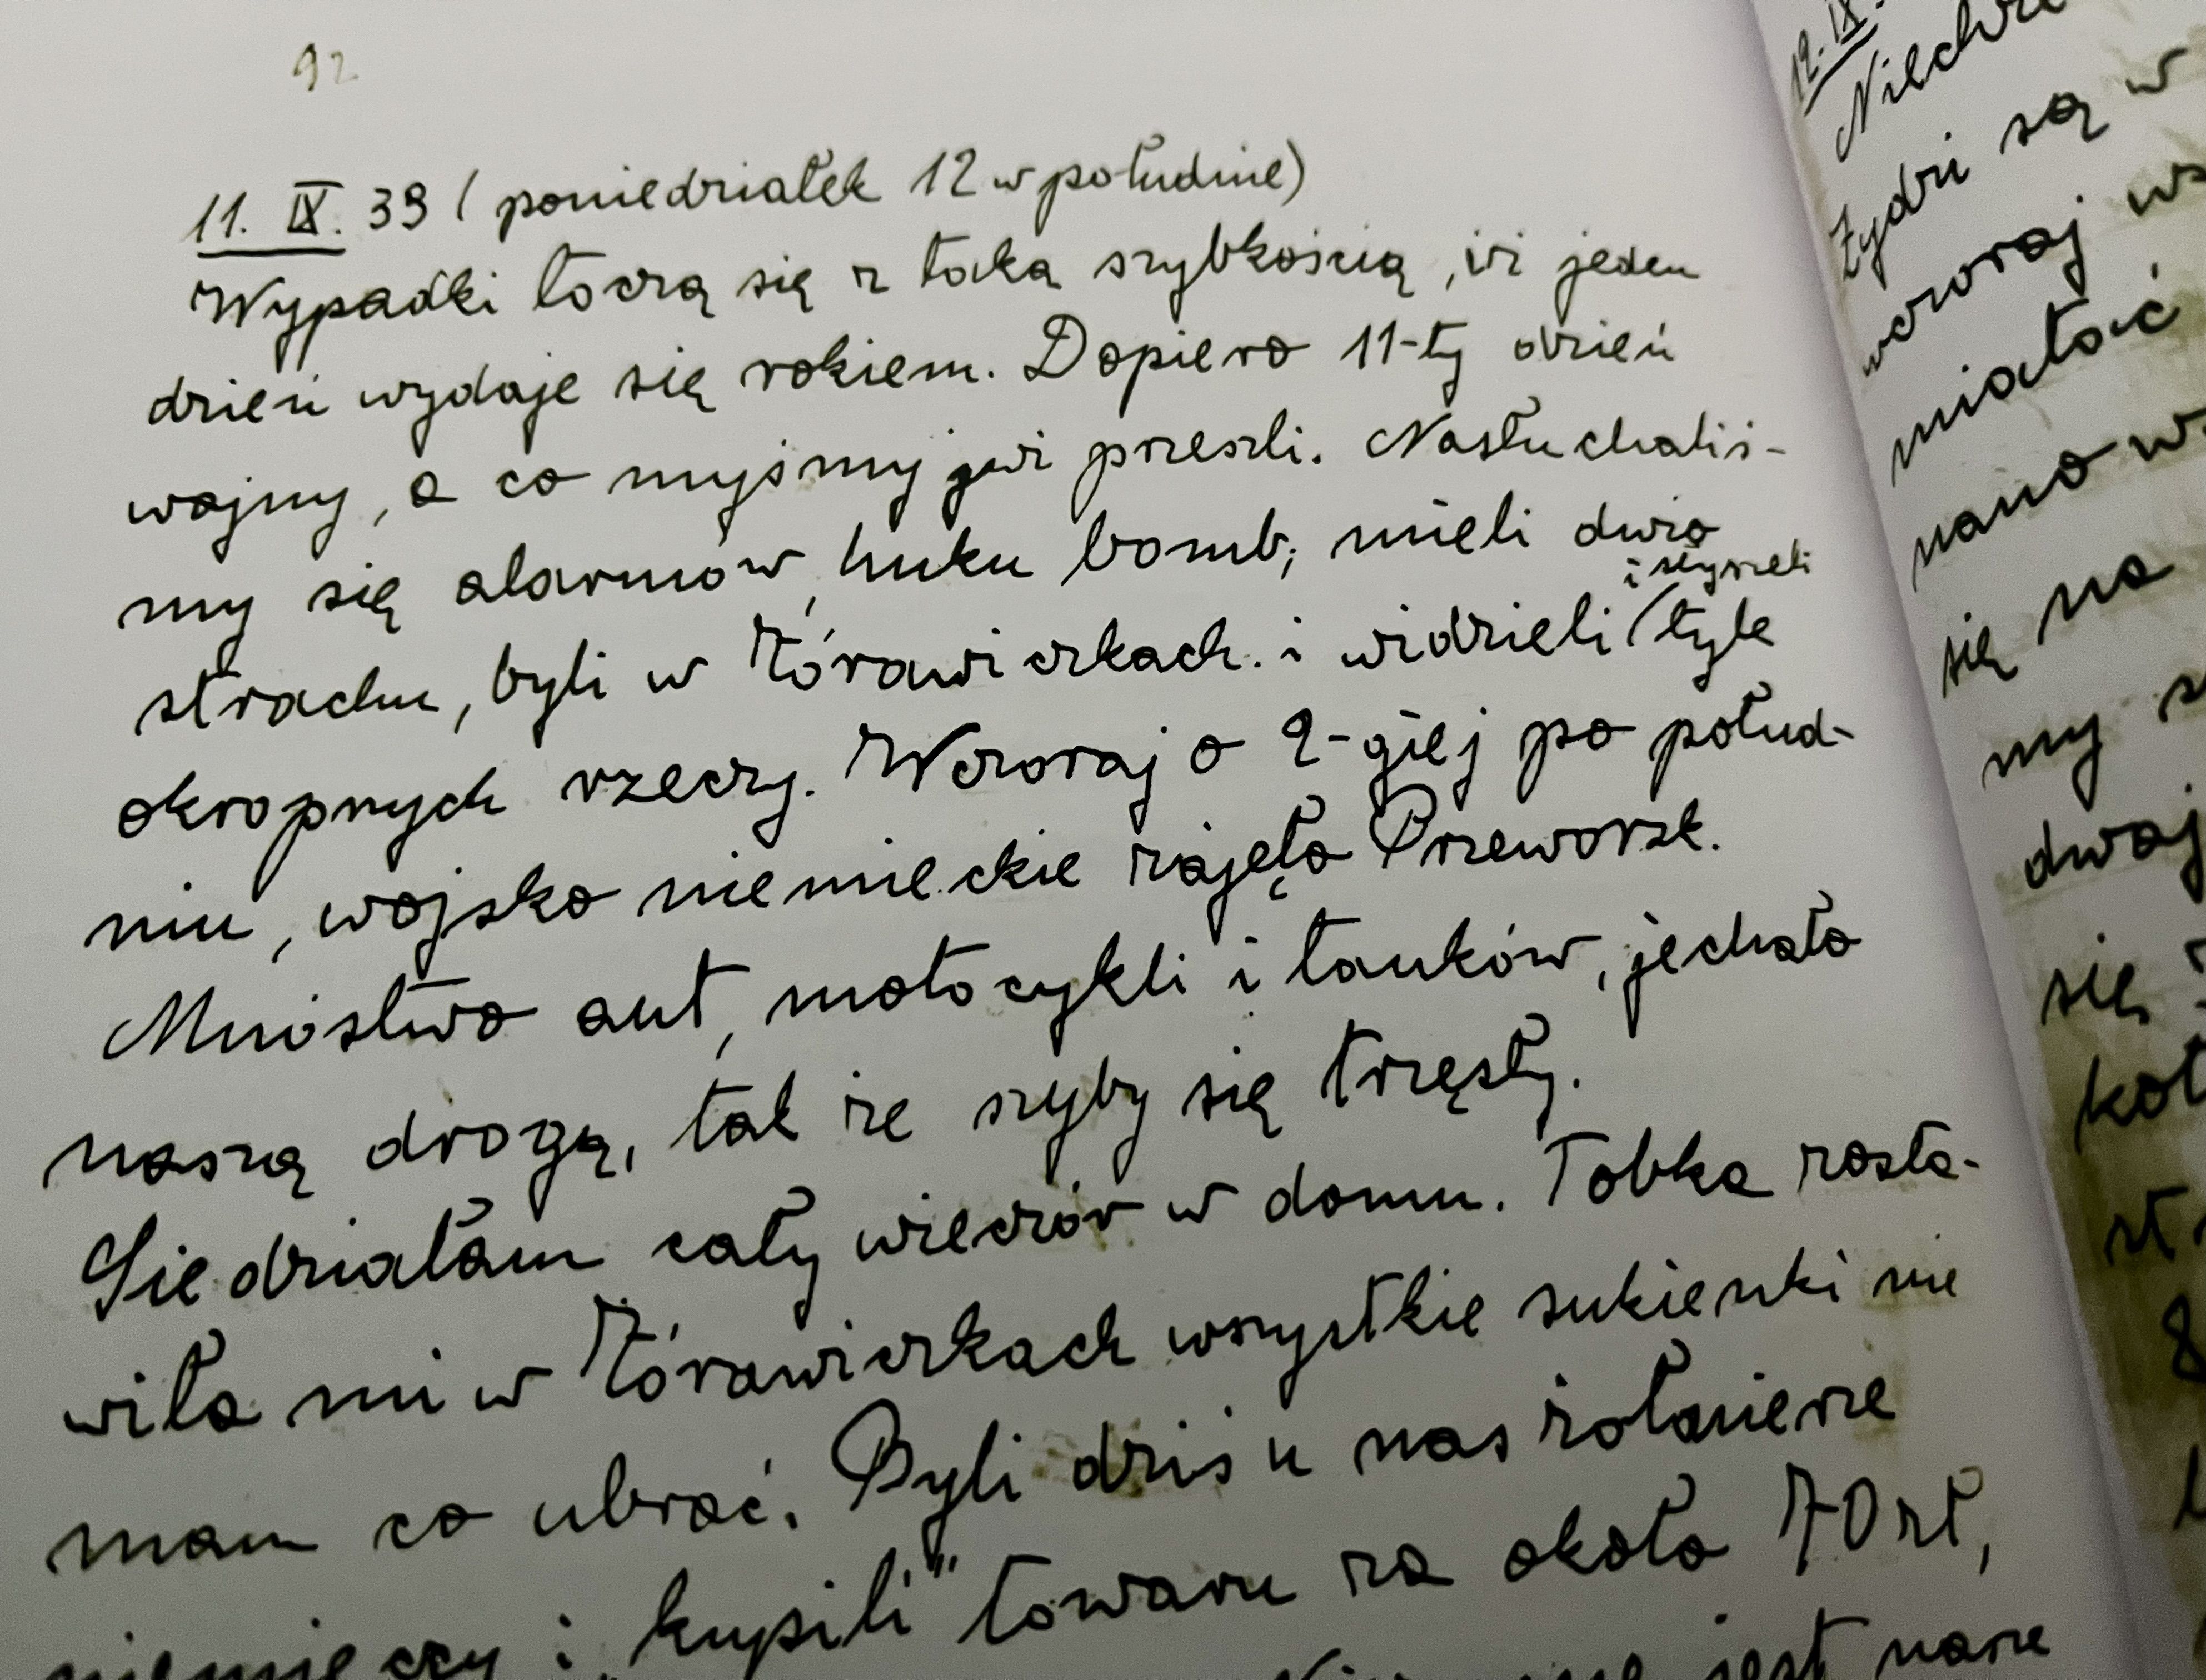 92
11. IX. 39 (poniedziałek 12 w południe)
Wypadki toczą się z taką szybkością, iż jeden
dzień wydaje się rokiem. Dopiero 11-ty dzień
wojny, a co myśmy już przeszli. Nasłuchaliś-
my się alarmów, huku bomb, mieli dużo
i słyszeli
strachu, byli w Żórawiczkach i widzieli tyle
okropnych rzeczy. Wczoraj o 2-giej po połud-
niu, wojsko niemieckie zajęło Przeworsk.
Mnóstwo aut, motocykli i tanków, jechało
naszą drogą, tak że szyby się trzęsły.
Siedziałam cały wieczór w domu. Tobka zosta-
wiła mi w Żórawiczkach wszystkie sukienki nie
mam co ubrać. Byli dziś u nas żołnierze
niemieccy i „kupili" towaru za około 70 zł,
jest nasze
12. IX.
Żydzi są w
wczoraj
miałość
nano
się na
my
dwaj
się